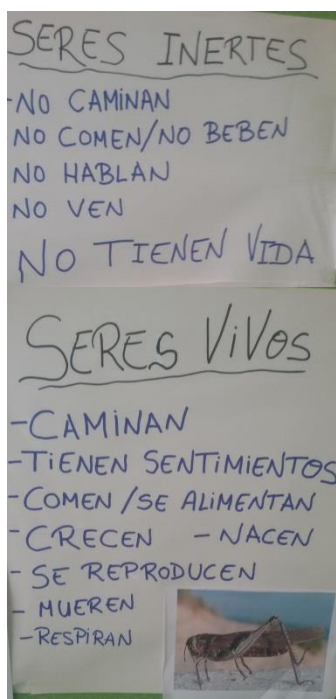 SERES INERTES
-NO CAMINAN
NO COMEN/NO BEBEN
NO HABLAN
NO VEN
NO TIENEN VIDA
SERES ViVOS
-CAMINAN
-TIENEN SENTIMIENTOS
-COMEN/SE ALIMENTAN
-CRECEN -NACEN
-SE REPRODUCEN
-MUEREN
-RESPIRAN